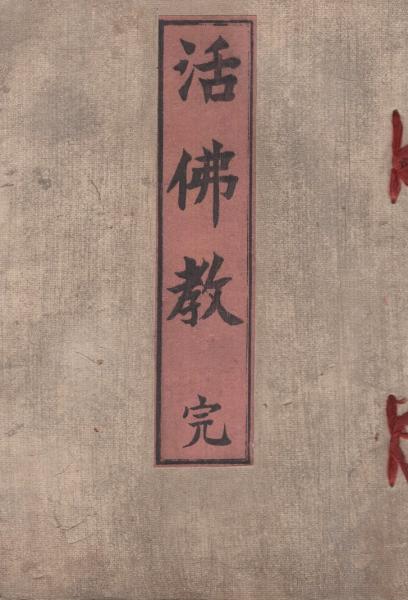 活佛教 完